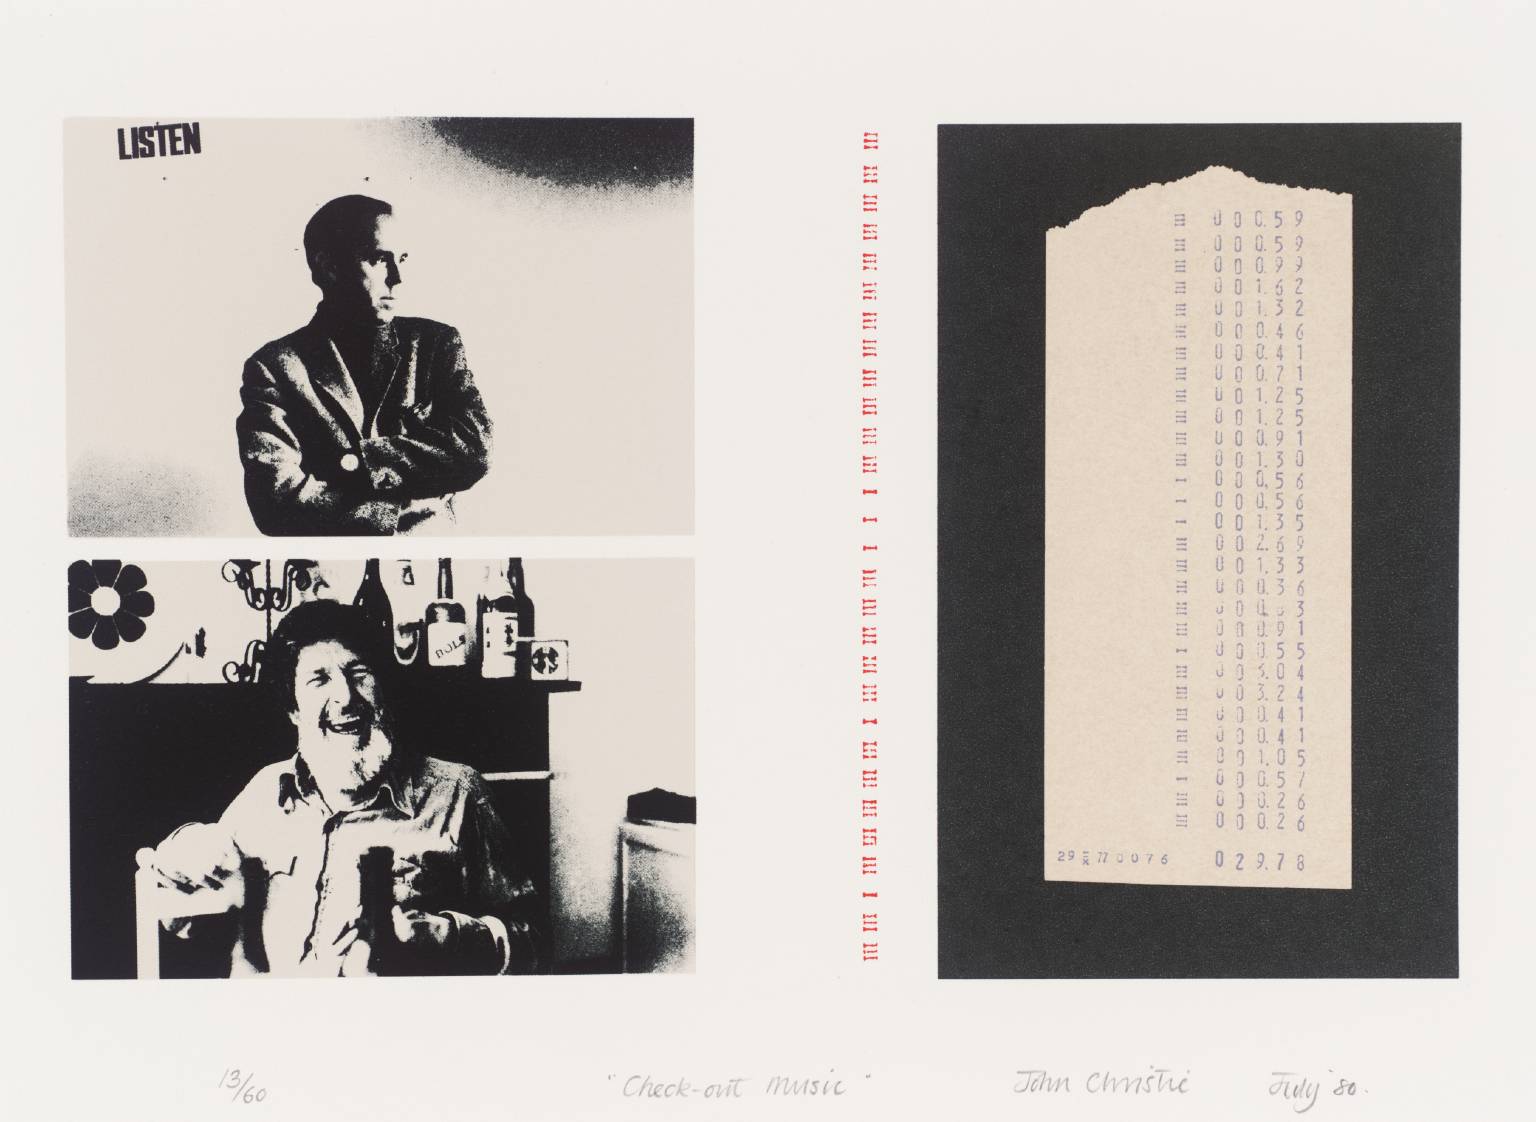 LISTEN
BOLS
III 0 0 0.5 9
III 0 0 0.5 9
III 0 0 0.9 9
III 0 0 1.6 2
III 0 0 1.3 2
III 0 0 0.4 6
III 0 0 0.4 1
III 0 0 0.7 1
III 0 0 1.2 5
III 0 0 1.2 5
III 0 0 0.9 1
III 0 0 1.3 0
I 0 0 0.5 6
I 0 0 0.5 6
I 0 0 1.3 5
III 0 0 2.6 9
III 0 0 1.3 3
III 0 0 0.3 6
III 0 0 3
III 0 0 0.9 1
I 0 0 0.5 5
III 0 0 3.0 4
III 0 0 3.2 4
III 0 0 0.4 1
III 0 0 0.4 1
III 0 0 1.0 5
I 0 0 0.5 7
III 0 0 0.2 6
III 0 0 0.2 6
29 77 0 0 7 6 0 2 9.7 8
13/60 "Check-out Music" John Christie July '80.